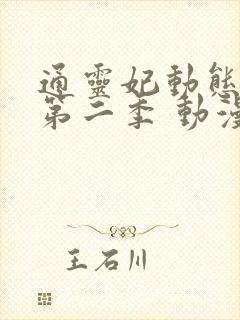 通靈妃動態
第二季 動漫
王石川